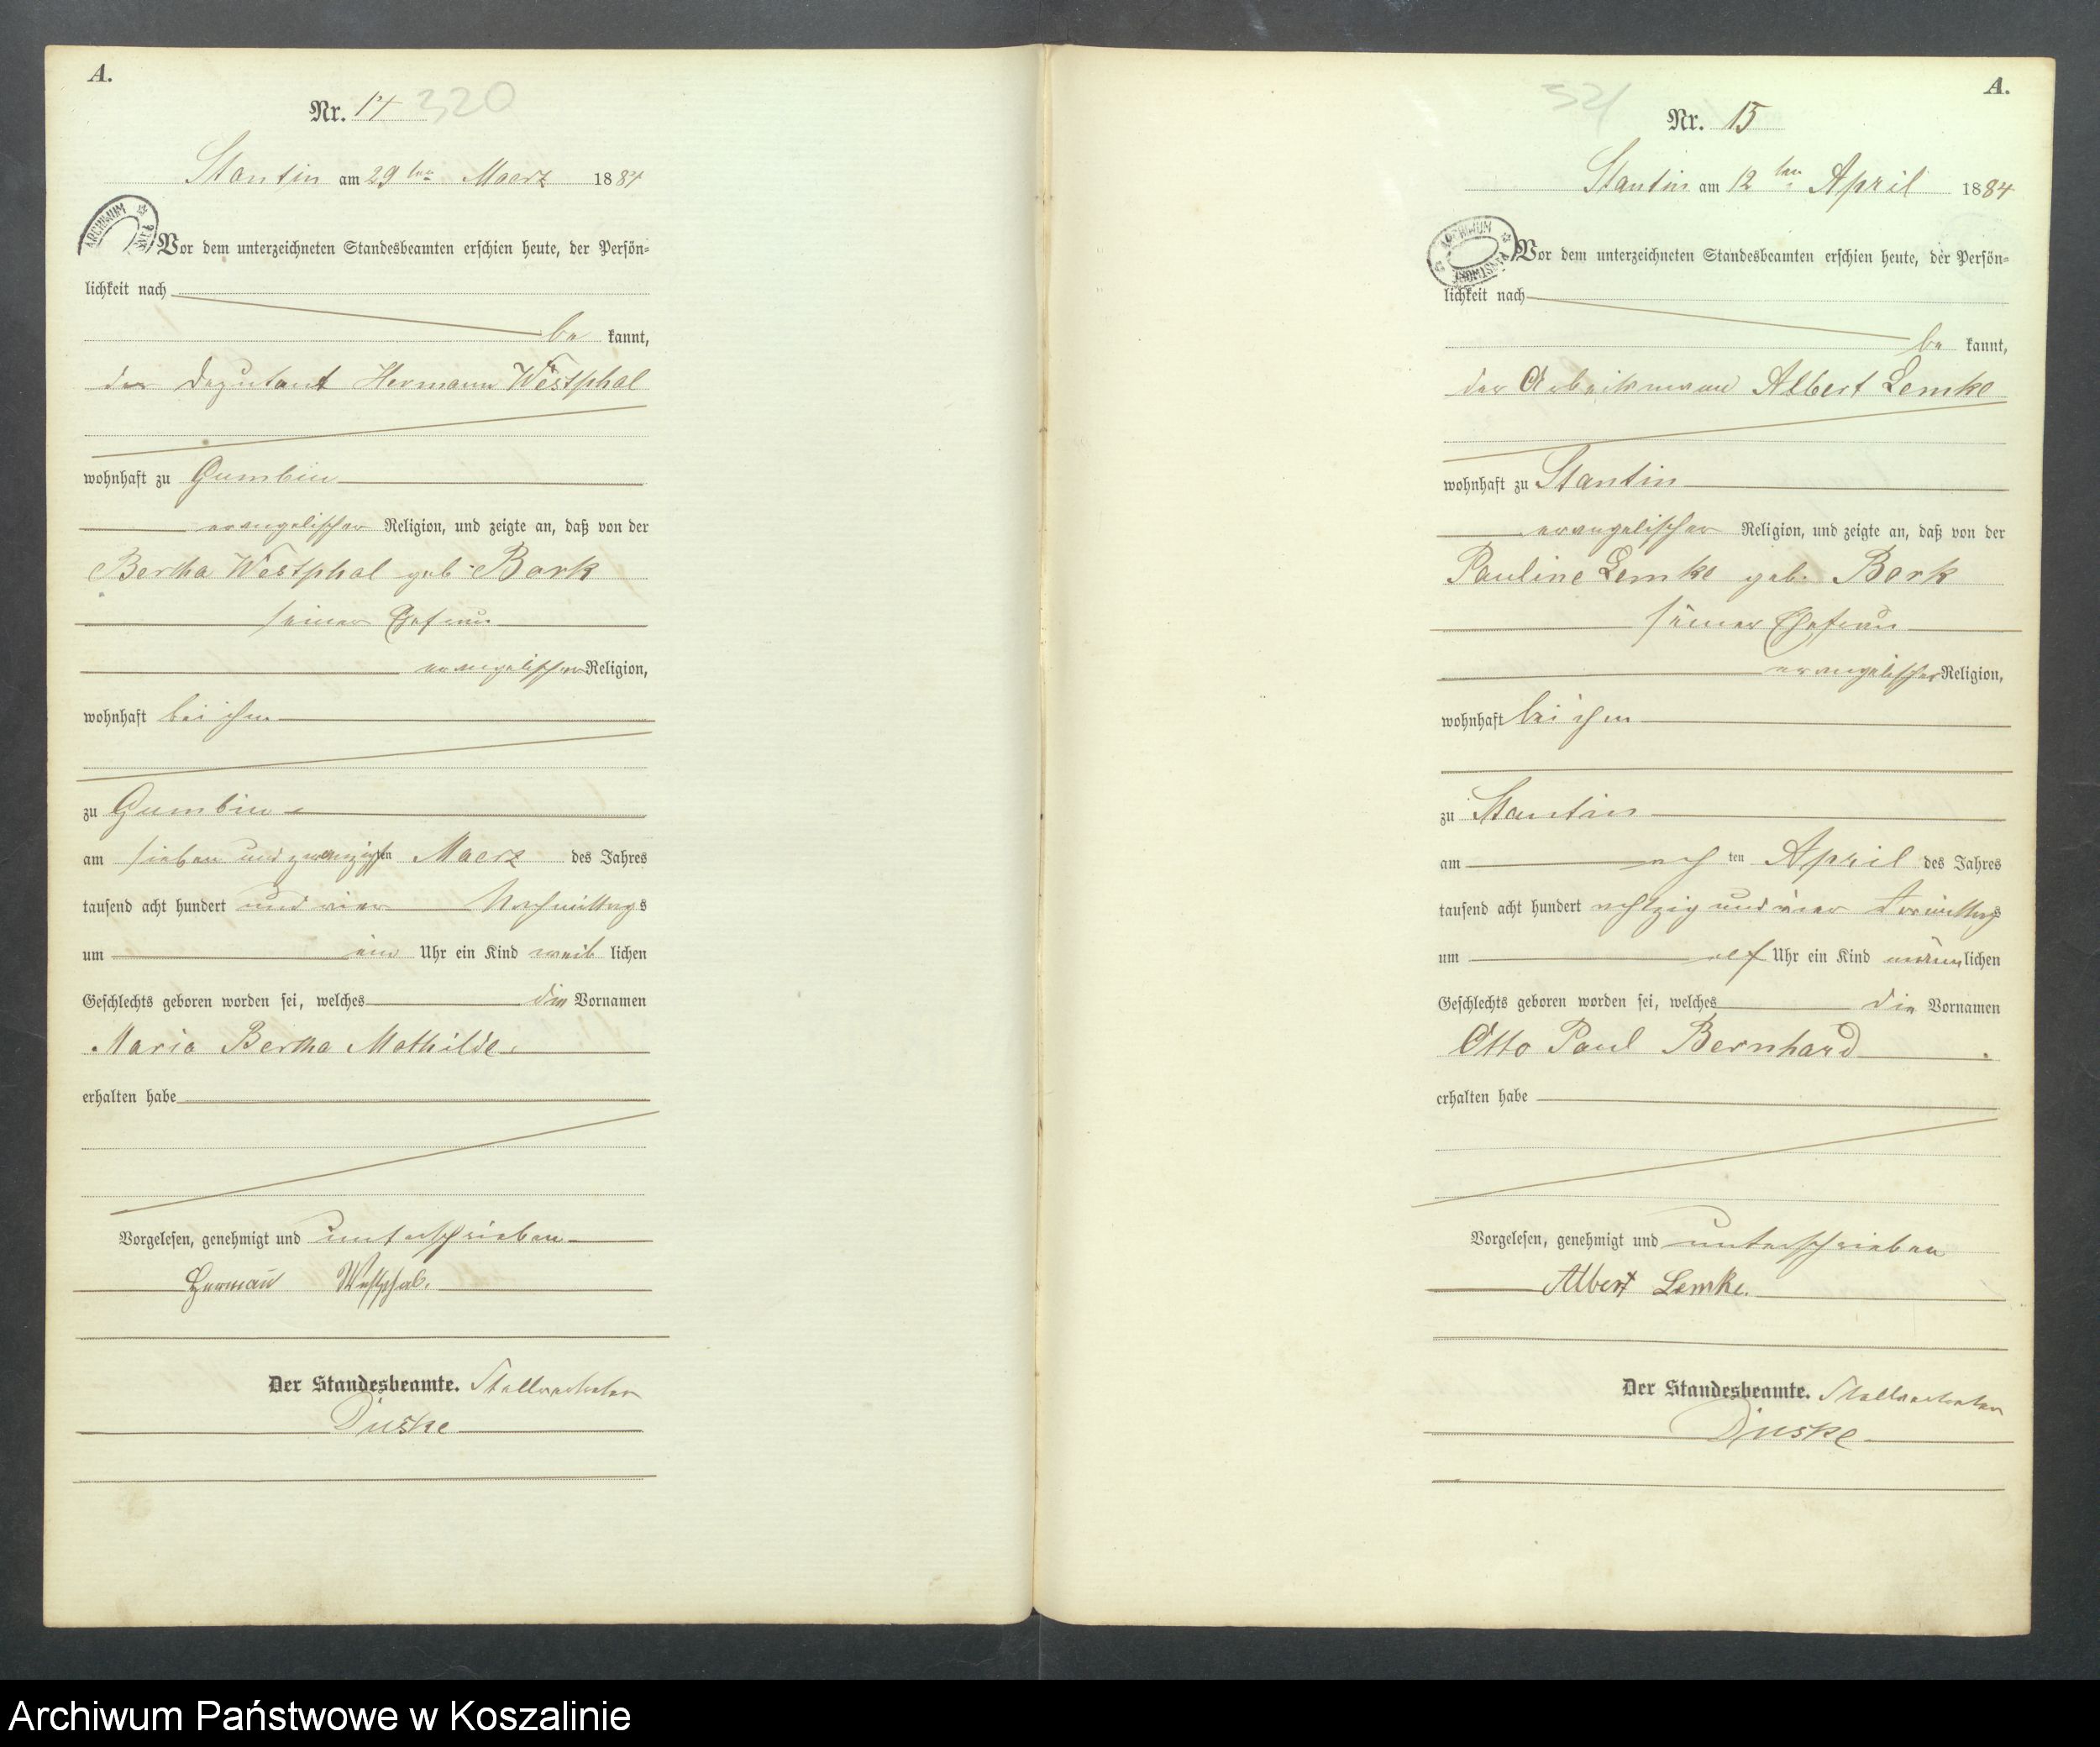 A.
Nr. 14 320
Stantin am 29ten Maerz 1884
ARCHIWUM
Vor dem unterzeichneten Standesbeamten erschien heute, der Persön=
lichkeit nach
be kannt,
der Deputant Hermann Westphal
wohnhaft zu Gumbin
evangelischer Religion, und zeigte an, daß von der
Bertha Westphal geb. Bork
seiner Ehefrau
evangelischer Religion,
wohnhaft bei ihm
zu Gumbin
am sieben und zwanzigsten Maerz des Jahres
tausend acht hundert und vier Nachmittags
um ein Uhr ein Kind weib lichen
Geschlechts geboren worden sei, welches die Vornamen
Maria Bertha Mathilde
erhalten habe
Vorgelesen, genehmigt und unterschrieben
Herman Westphal.
Der Standesbeamte. Stellvertreter
Duske
A.
321
Nr. 15
Stantin am 12ten April 1884
ARCHIWUM
Vor dem unterzeichneten Standesbeamten erschien heute, der Persön=
lichkeit nach
be kannt,
der Arbeitsmann Albert Lemke
wohnhaft zu Stantin
evangelischer Religion, und zeigte an, daß von der
Pauline Lemke geb. Bork
seiner Ehefrau
evangelischer Religion,
wohnhaft bei ihm
zu Stantin
am ach ten April des Jahres
tausend acht hundert achtzig und vier Vormittags
um elf Uhr ein Kind männlichen
Geschlechts geboren worden sei, welches die Vornamen
Otto Paul Bernhard
erhalten habe
Vorgelesen, genehmigt und unterschrieben
Albert Lemke.
Der Standesbeamte. Stellvertreter
Duske
Archiwum Państwowe w Koszalinie